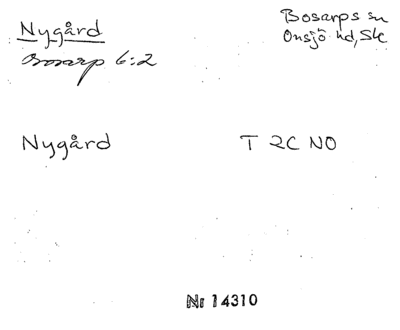 Nygård
Bosarp 6:2
Bosarps sn
Onsjö hd, Sk
Nygård
T 2C NO
Nr 14310